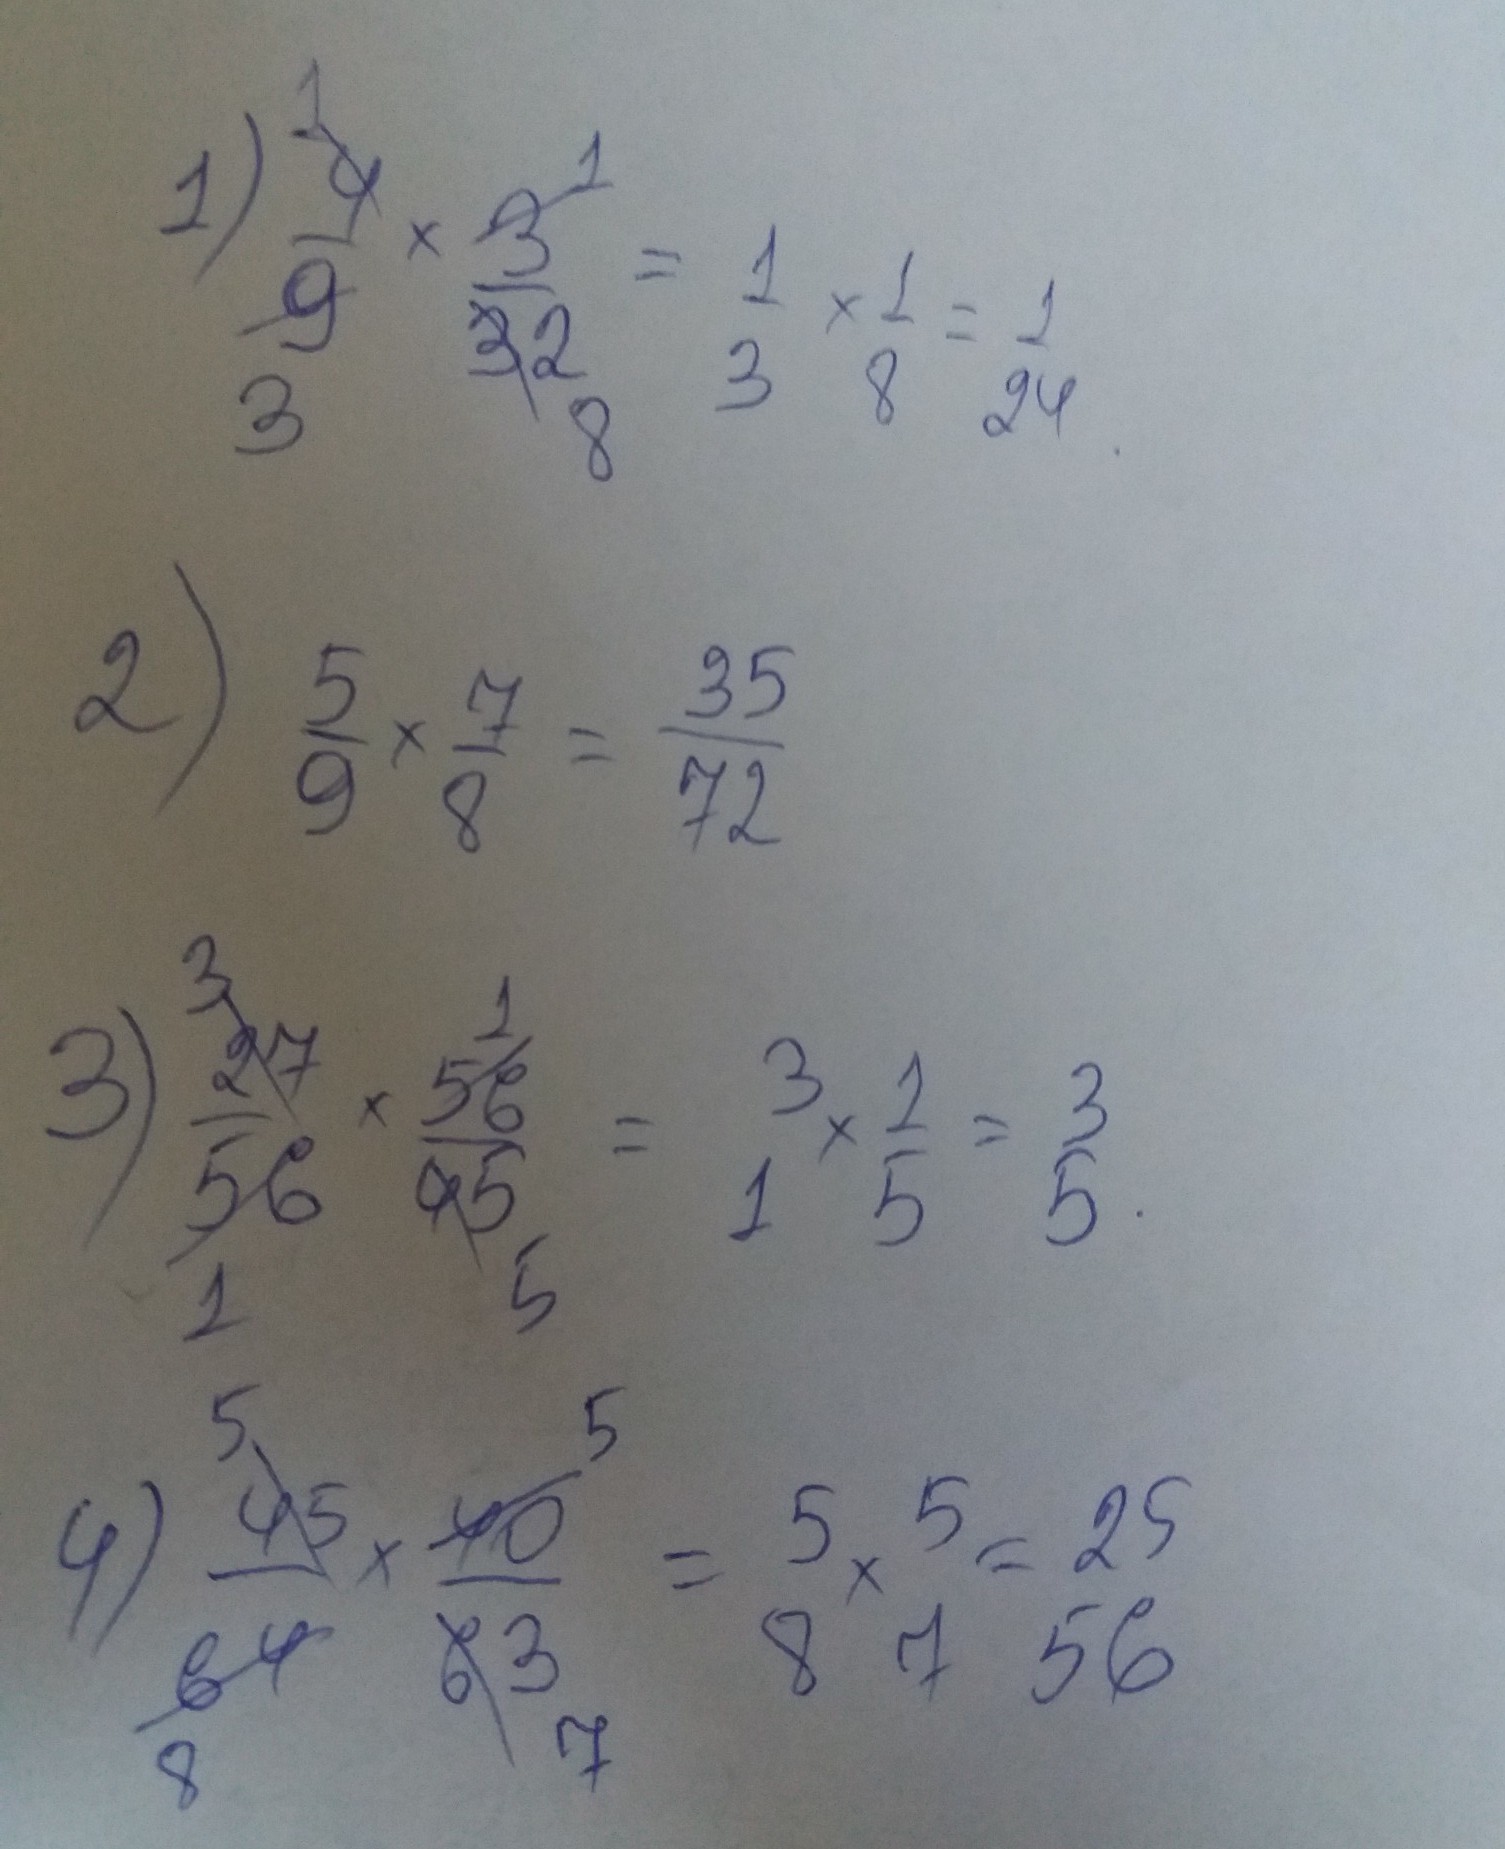 1) 1 4/9 3 × 3/32 1 8 = 1/3 × 1/8 = 1/24 .
2) 5/9 × 7/8 = 35/72
3) 3 27/56 1 × 1 56/45 5 = 3/1 × 1/5 = 3/5 .
4) 5 45/64 8 × 40/63 5 7 = 5/8 × 5/7 = 25/56